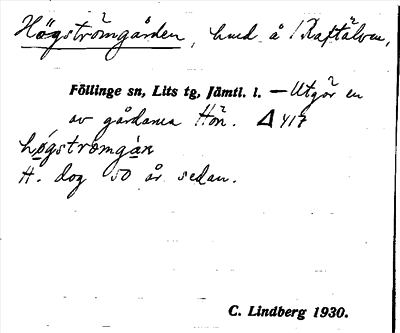 Högströmgården, hmd å Raftälven,
Föllinge sn, Lits tg, Jämtl. l. — Utgör en
av gårdarna Hön. Δ 417
högströmgàṛn
H. dog 50 år sedan.
C. Lindberg 1930.